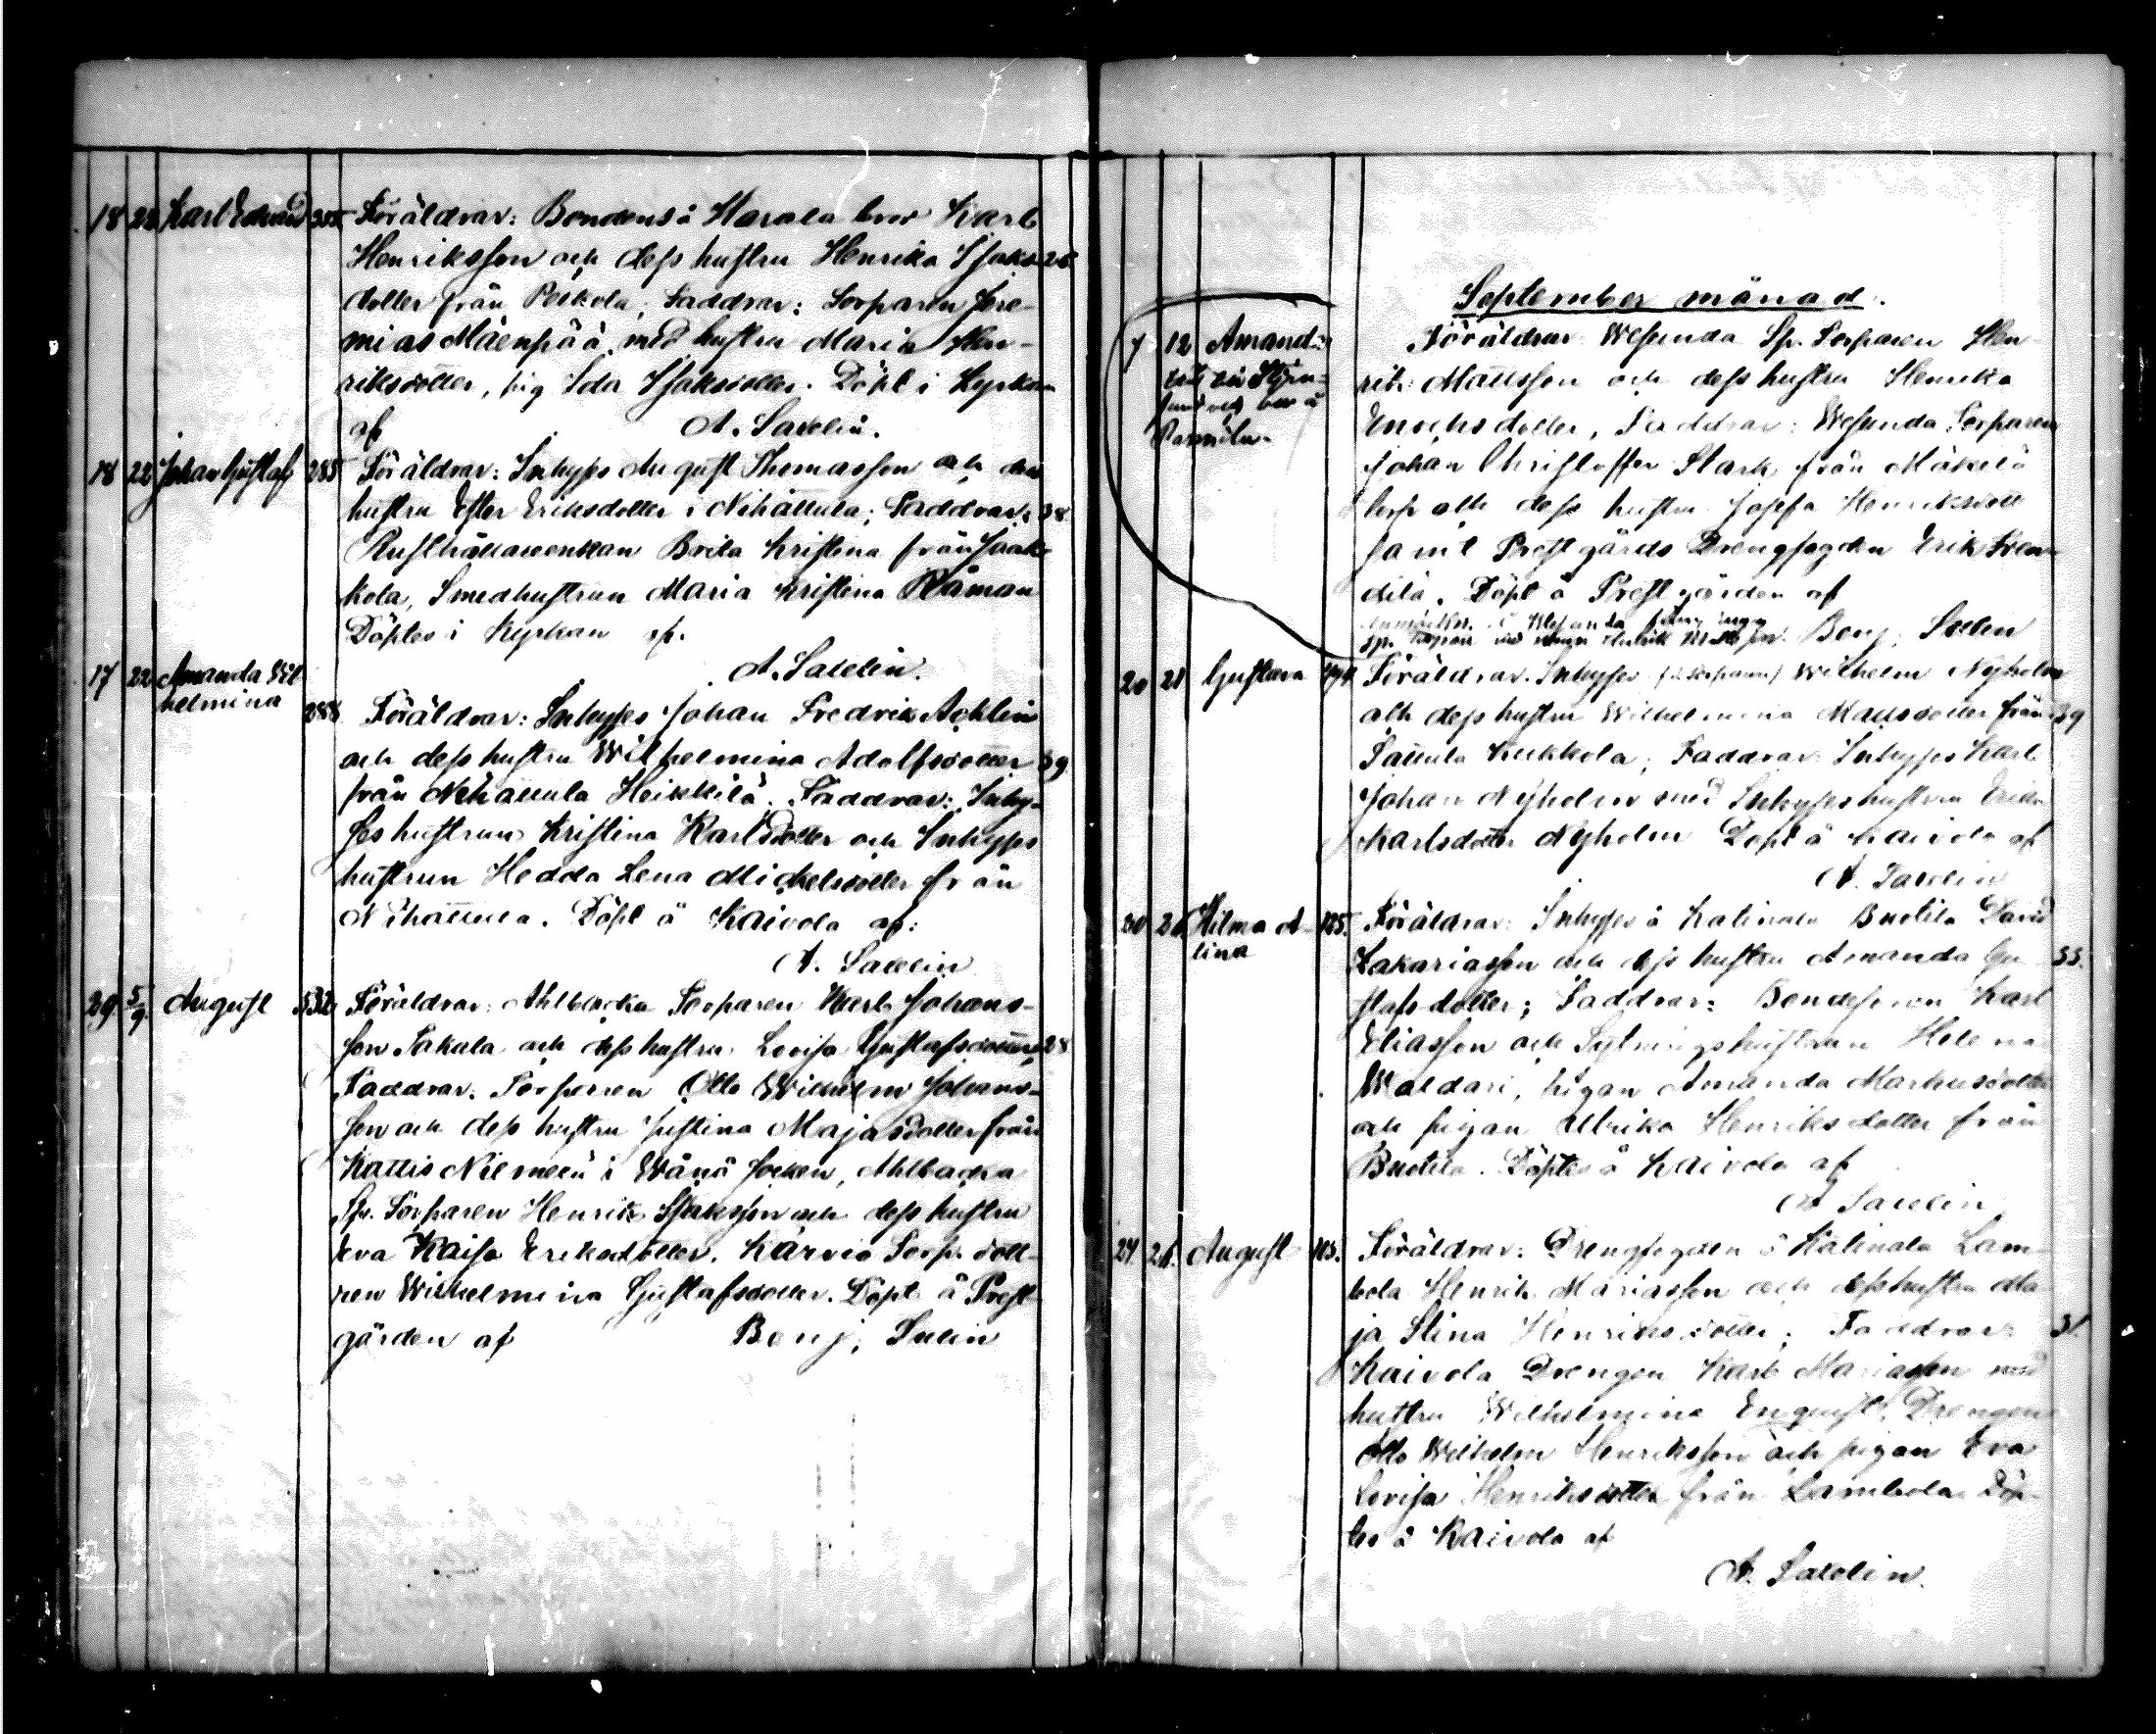 18 22 Karl Edvard 355 Föräldrar: Bondens å Harala bror Karl
Henriksson och dess hustru Henrika Isaks 26
dotter från Peikola; Faddrar: Torparen Jere-
mias Mäenpää med hustru Maria Hen-
riksdotter, pig Ida Isaksdotter. Döpt i Kyrkan
af A. Saxelin.
18 22 Johan Gustaf 285 Föräldrar: Inhyses August Thomasson och dess
hustru Ester Eriksdotter i Nihattula; Faddrar: 38
Rusthållareenkan Brita Kristina från Jaak-
kola, Smedhustrun Maria Kristina Råman
Döptes i Kyrkan af.
A. Saxelin.
17 22 Amanda Wil
helmina
288 Föräldrar: Inhyses Johan Fredrik Achlin
och dess hustru Wilhelmina Adolfsdotter 39
från Nihattula Heikkilä. Faddrar: Inhy-
ses hustrun Kristina Karlsdotter och Inhyses
hustrun Hedda Lena Michelsdotter från
Nihattula. Döpt å Kaivola af:
A. Saxelin
29 5/9. August 532 Föräldrar: Ahlbacka Torparen Karl Johans-
son Takala och dess hustru Lovisa Gustafsdotter 28
Faddrar: Torparen Otto Wilhelm Johans-
son och dess hustru Justina Majasdotter från
Kattis Niemelä i Wånå socken, Ahlbacka
Sp. Torparen Henrik Isaksson och dess hustru
Eva Kaisa Eriksdotter. Kärvio Torp. dott-
ren Wilhelmina Gustafsdotter. Döpt å Prest-
gården af Benj. Salin
September månad.
7 12 Amanda
Föräldrar Wesunda Sp. Torparen Hen
rik Mattsson och dess hustru Henrika
Enochsdotter, Faddrar: Wesunda Torparen
Johan Christoffer Stark från Mäkelä
torp och dess hustru Josefa Henriksdott
samt Prestgårds Drengfogden Erik
Döpt å Prestgården af
Benj. Salin
20 21 Gustava Föräldrar. Inhyses (f.d. torparen) Wilhelm Nyholm
och dess hustru Wilhelmina Mattsdotter från 39
Sattula Kukkola; Faddrar Inhyses Karl
Johan Nyholm med Inhyseshustrun Erika
Karlsdotter Nyholm Döpt å Kaivola af
A. Saxelin
20 26 Hilma A-
lina
105. Föräldrar: Inhyses å Katinala Buotila David
Zakariasson och dess hustru Amanda Gu 33.
stafsdotter; Faddrar: Bondeson Karl
Eliasson och Sytningshustrun Helena
Waldari, pigan Amanda Markusdotter
och pigan Ulrika Henriksdotter från
Buotila. Döptes å Kaivola af
A Saxelin
24 26. August 105. Föräldrar: Drengfogden å Katinala Lam-
bola Henrik Mariasson och dess hustru Ma
ja Stina Henriksdotter; Faddrar: 31
Kaivola Drengen Karl Mariasson med
hustru Wilhelmina Enquist, Drengen
Otto Wilhelm Henriksson och pigan Eva
Lovisa Henriksdotter från Lambola Döp-
tes å Kaivola af
A. Saxelin.